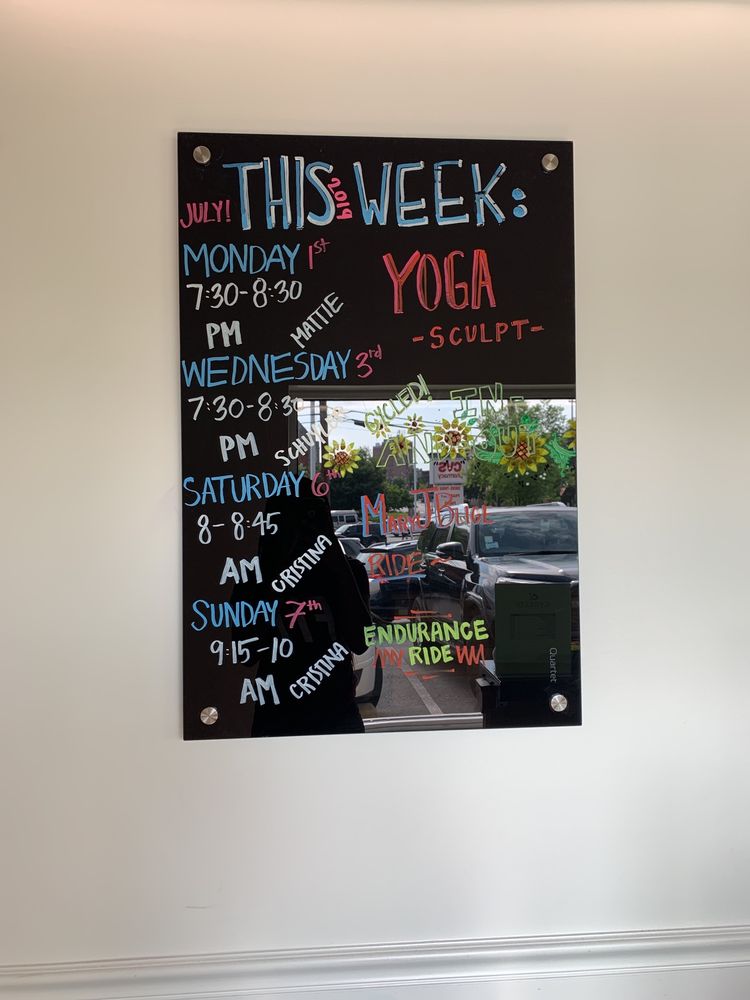 THIS WEEK:
JULY! 2019
MONDAY 1st
7:30-8:30
PM MATTIE
YOGA
-SCULPT-
WEDNESDAY 3rd
7:30-8:30
PM
CYCLED! IN-
AND OUT
SATURDAY 6th
8-8:45
AM CRISTINA
MARY J BLIGE
RIDE
SUNDAY 7th
9:15-10
AM CRISTINA
ENDURANCE
RIDE
"CVS"
Quartet